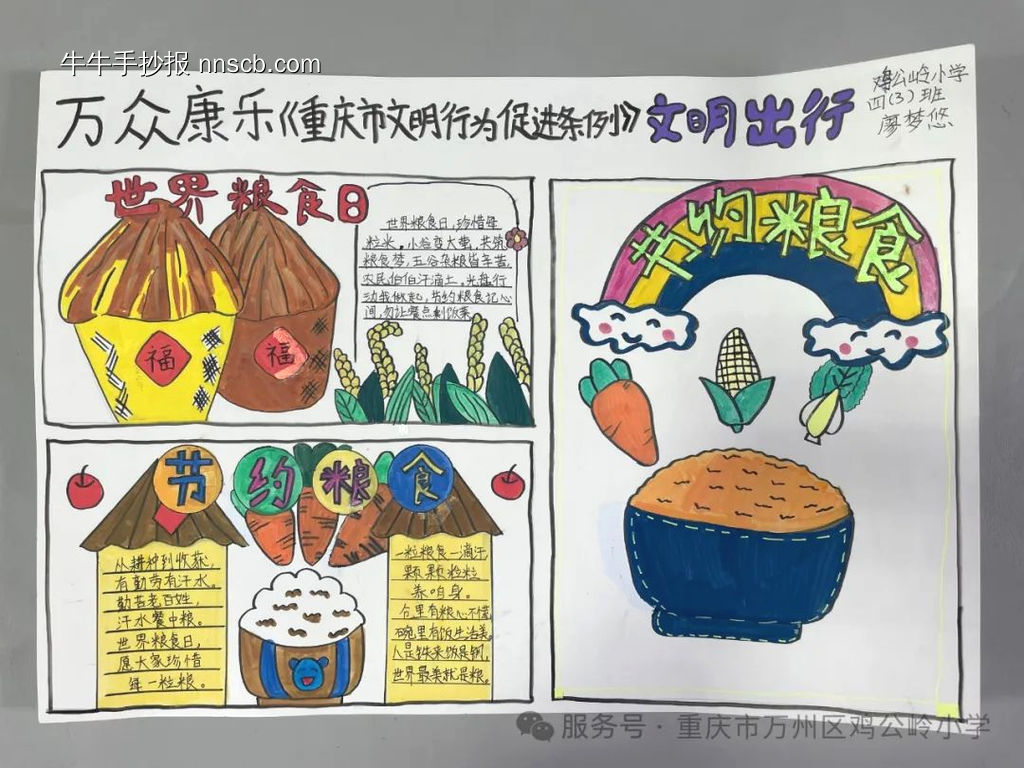 牛牛手抄报 nnscb.com
万众康乐《重庆市文明行为促进条例》文明出行
鸡公岭小学
四(3)班
廖梦悠
世界粮食日
世界粮食日,珍惜每
粒米。小谷变大堂,共筑
粮食梦,五谷杂粮皆辛苦,
农民伯伯汗滴土。光盘行
动我做起,节约粮食记心
间,勿让餐点剩饭菜
福
福
节约粮食
节约粮食
从耕种到收获,
有勤劳有汗水。
勤苦老百姓,
汗水餐中粮。
世界粮食日,
愿大家珍惜
每一粒粮。
一粒粮食一滴汗
颗颗粒粒
养咱身。
仓里有粮心不慌
碗里有饭生活美
人是铁来饭是钢,
世界最美就是粮。
服务号·重庆市万州区鸡公岭小学